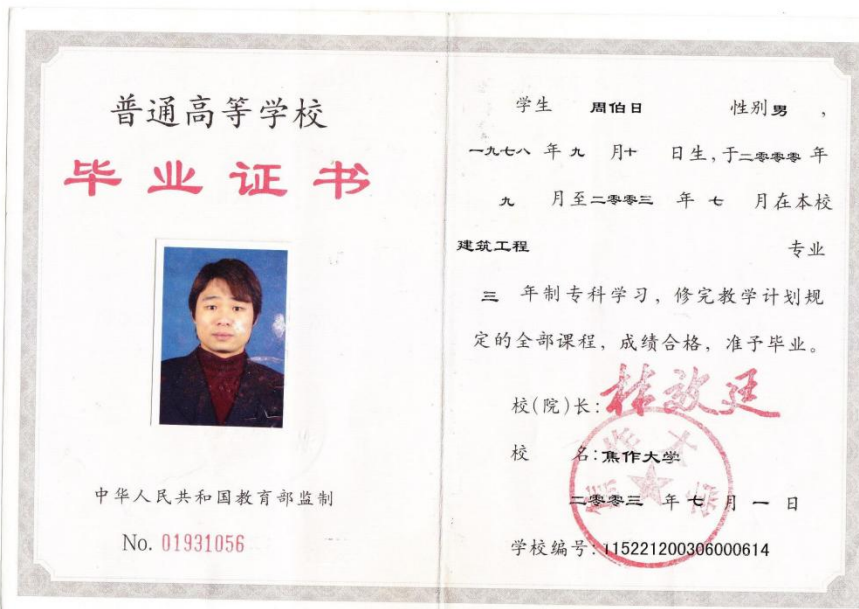 普通高等学校
毕业证书
中华人民共和国教育部监制
No. 01931056
学生 周伯日 性别男，
一九七八 年九 月十 日生，于二零零零年
九 月至二零零三 年 七 月在本校
建筑工程 专业
三 年制专科学习，修完教学计划规
定的全部课程，成绩合格，准予毕业。
校(院)长：
校 名：焦作大学
二零零三 年 七 月 一 日
学校编号：115221200306000614
焦作大学